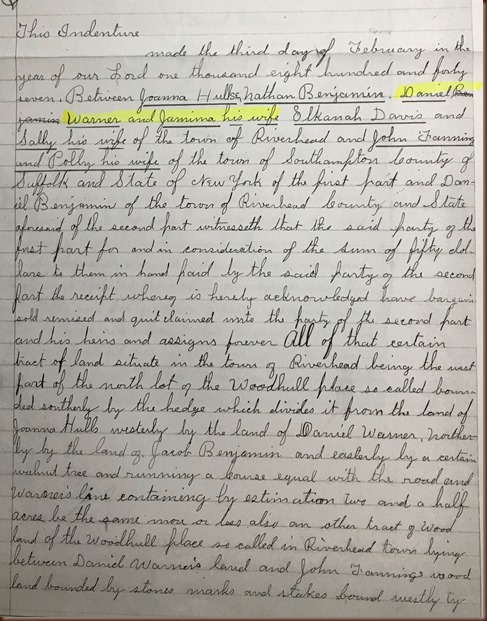 This Indenture
made the third day of February in the
year of our Lord one thousand eight hundred and forty
seven. Between Joanna Hulse, Nathan Benjamin, Daniel Ben-
jamin Warner and Jamima his wife Elkanah Davis and
Sally his wife of the town of Riverhead and John Fanning
and Polly his wife of the town of Southampton County of
Suffolk and State of New York of the first part and Dan-
iel Benjamin of the town of Riverhead County and State
aforesaid of the second part witnesseth that the said party of the
first part for and in consideration of the sum of fifty dol-
lars to them in hand paid by the said party of the second
part the receipt whereof is hereby acknowledged have bargain
sold remised and quit claimed unto the party of the second part
and his heirs and assigns forever All of that certain
tract of land situate in the town of Riverhead being the west
part of the north lot of the Woodhull place so called boun-
ded southerly by the hedge which divides it from the land of
Joanna Hulls westerly by the land of Daniel Warner, norther-
ly by the land of Jacob Benjamin and easterly by a certain
walnut tree and running a course equal with the road and
Warner's line containing by estimation two and a half
acres be the same more or less also an other tract of wood
land of the Woodhull place so called in Riverhead town lying
between Daniel Warner's land and John Fanning's wood
land bounded by stones marks and stakes bound westly by